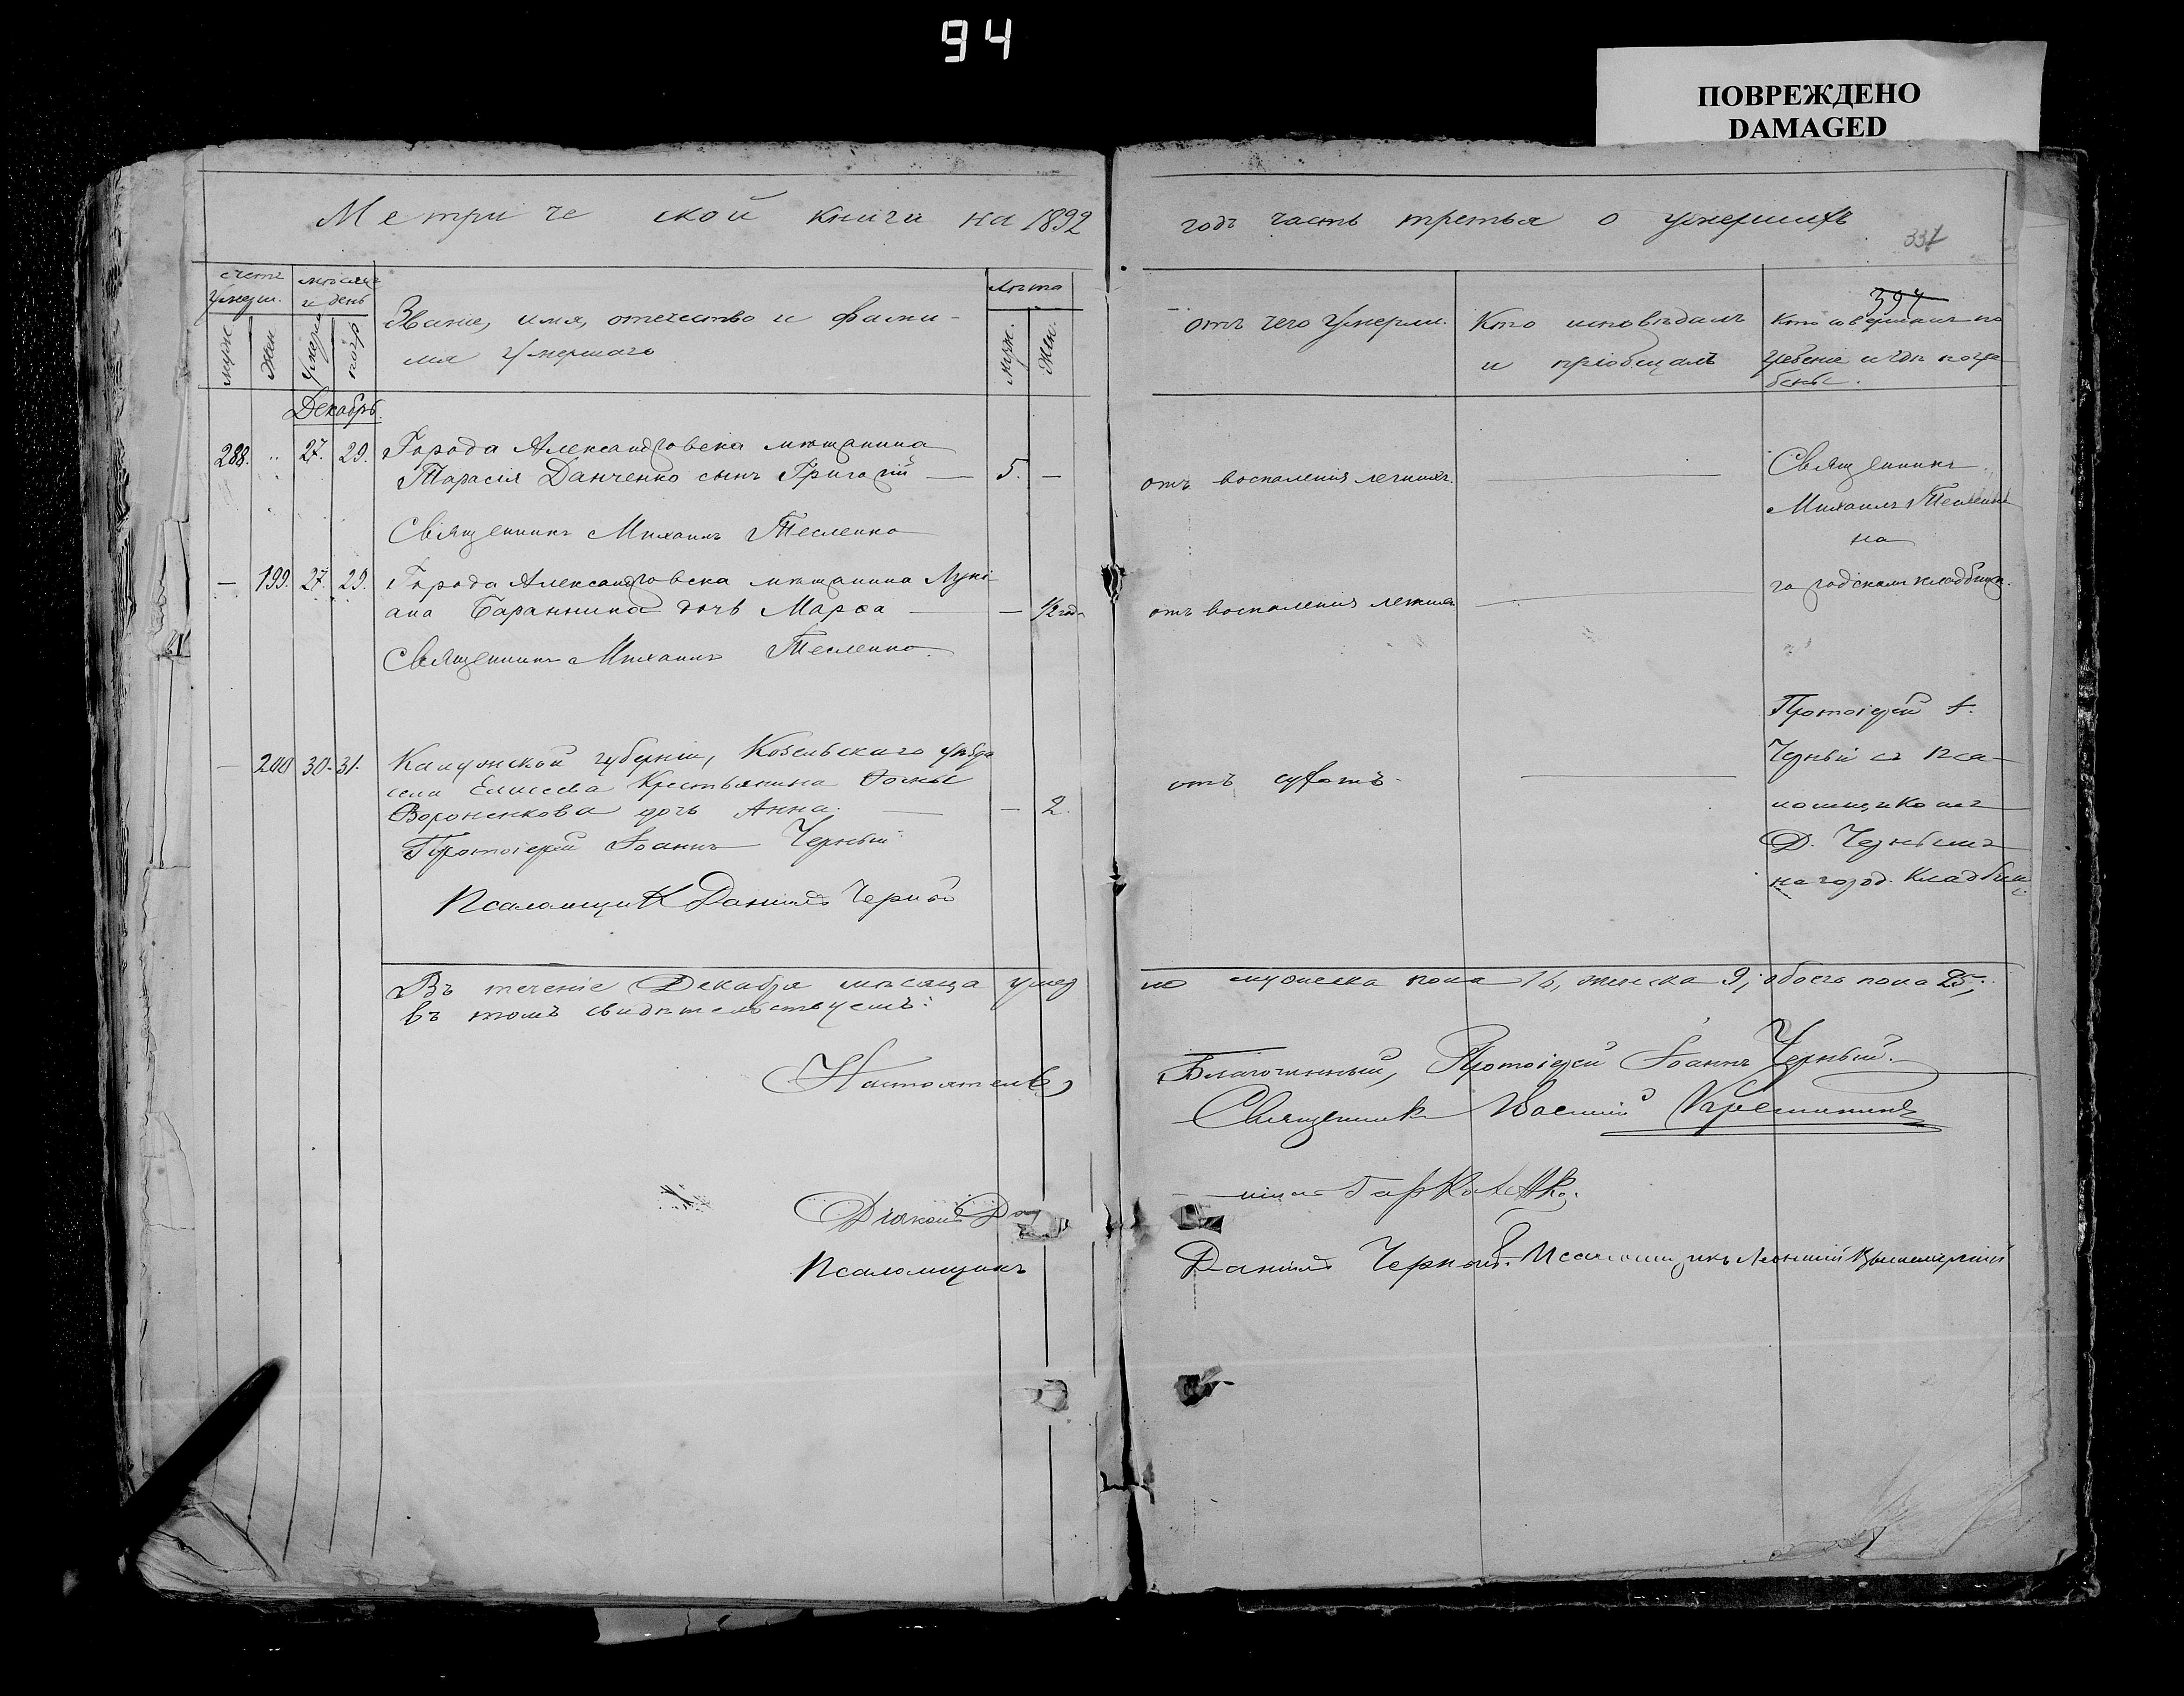 94
ПОВРЕЖДЕНО
DAMAGED
Метрической книги на 1892
годъ часть третья о умершихъ
337
397
счетъ умерш.
мѣсяцъ и день
Званіе, имя, отечество и фами-
лія умершаго
Лѣта
муж.
жен.
умерш.
погр.
муж.
жен.
отъ чего умерли.
Кто исповѣдалъ
и пріобщалъ
Кто совершалъ по
гребеніе и гдѣ погре
бены.
Декабрь
288. " 27. 29. Города Александровска мѣщанина
Тарасія Данченко сынъ Григорій — 5. —
отъ воспаленія легкихъ.
Священникъ
Михаилъ Тесленко
на
городскомъ кладбищѣ.
Священникъ Михаилъ Тесленко
— 199. 27. 29. Города Александровска мѣщанина Лукі-
ана Баранника дочь Марѳа — — ½ год.
отъ воспаленія легкихъ
Священникъ Михаилъ Тесленко.
— 200 30. 31. Калужской губерніи, Козельскаго уѣзда
села Елисеева Крестьянина
Вороненкова дочь Анна. — — 2.
отъ сухотъ.
Протоіерей І.
Черный съ Пса-
ломщикомъ
Д. Чернымъ
на город. Кладбищ.
Протоіерей Іоаннъ Черный
Псаломщикъ Даніилъ Черный
Въ теченіе Декабря мѣсяца умер
ло мужеска пола 16, женска 9, обоего пола 25,
въ томъ свидѣтельствуемъ:
Настоятель,
Благочинный, Протоіерей Іоаннъ Черный.
Священникъ Василій
Діаконъ
Псаломщикъ
Даніилъ Черный. Псаломщикъ Леонтій